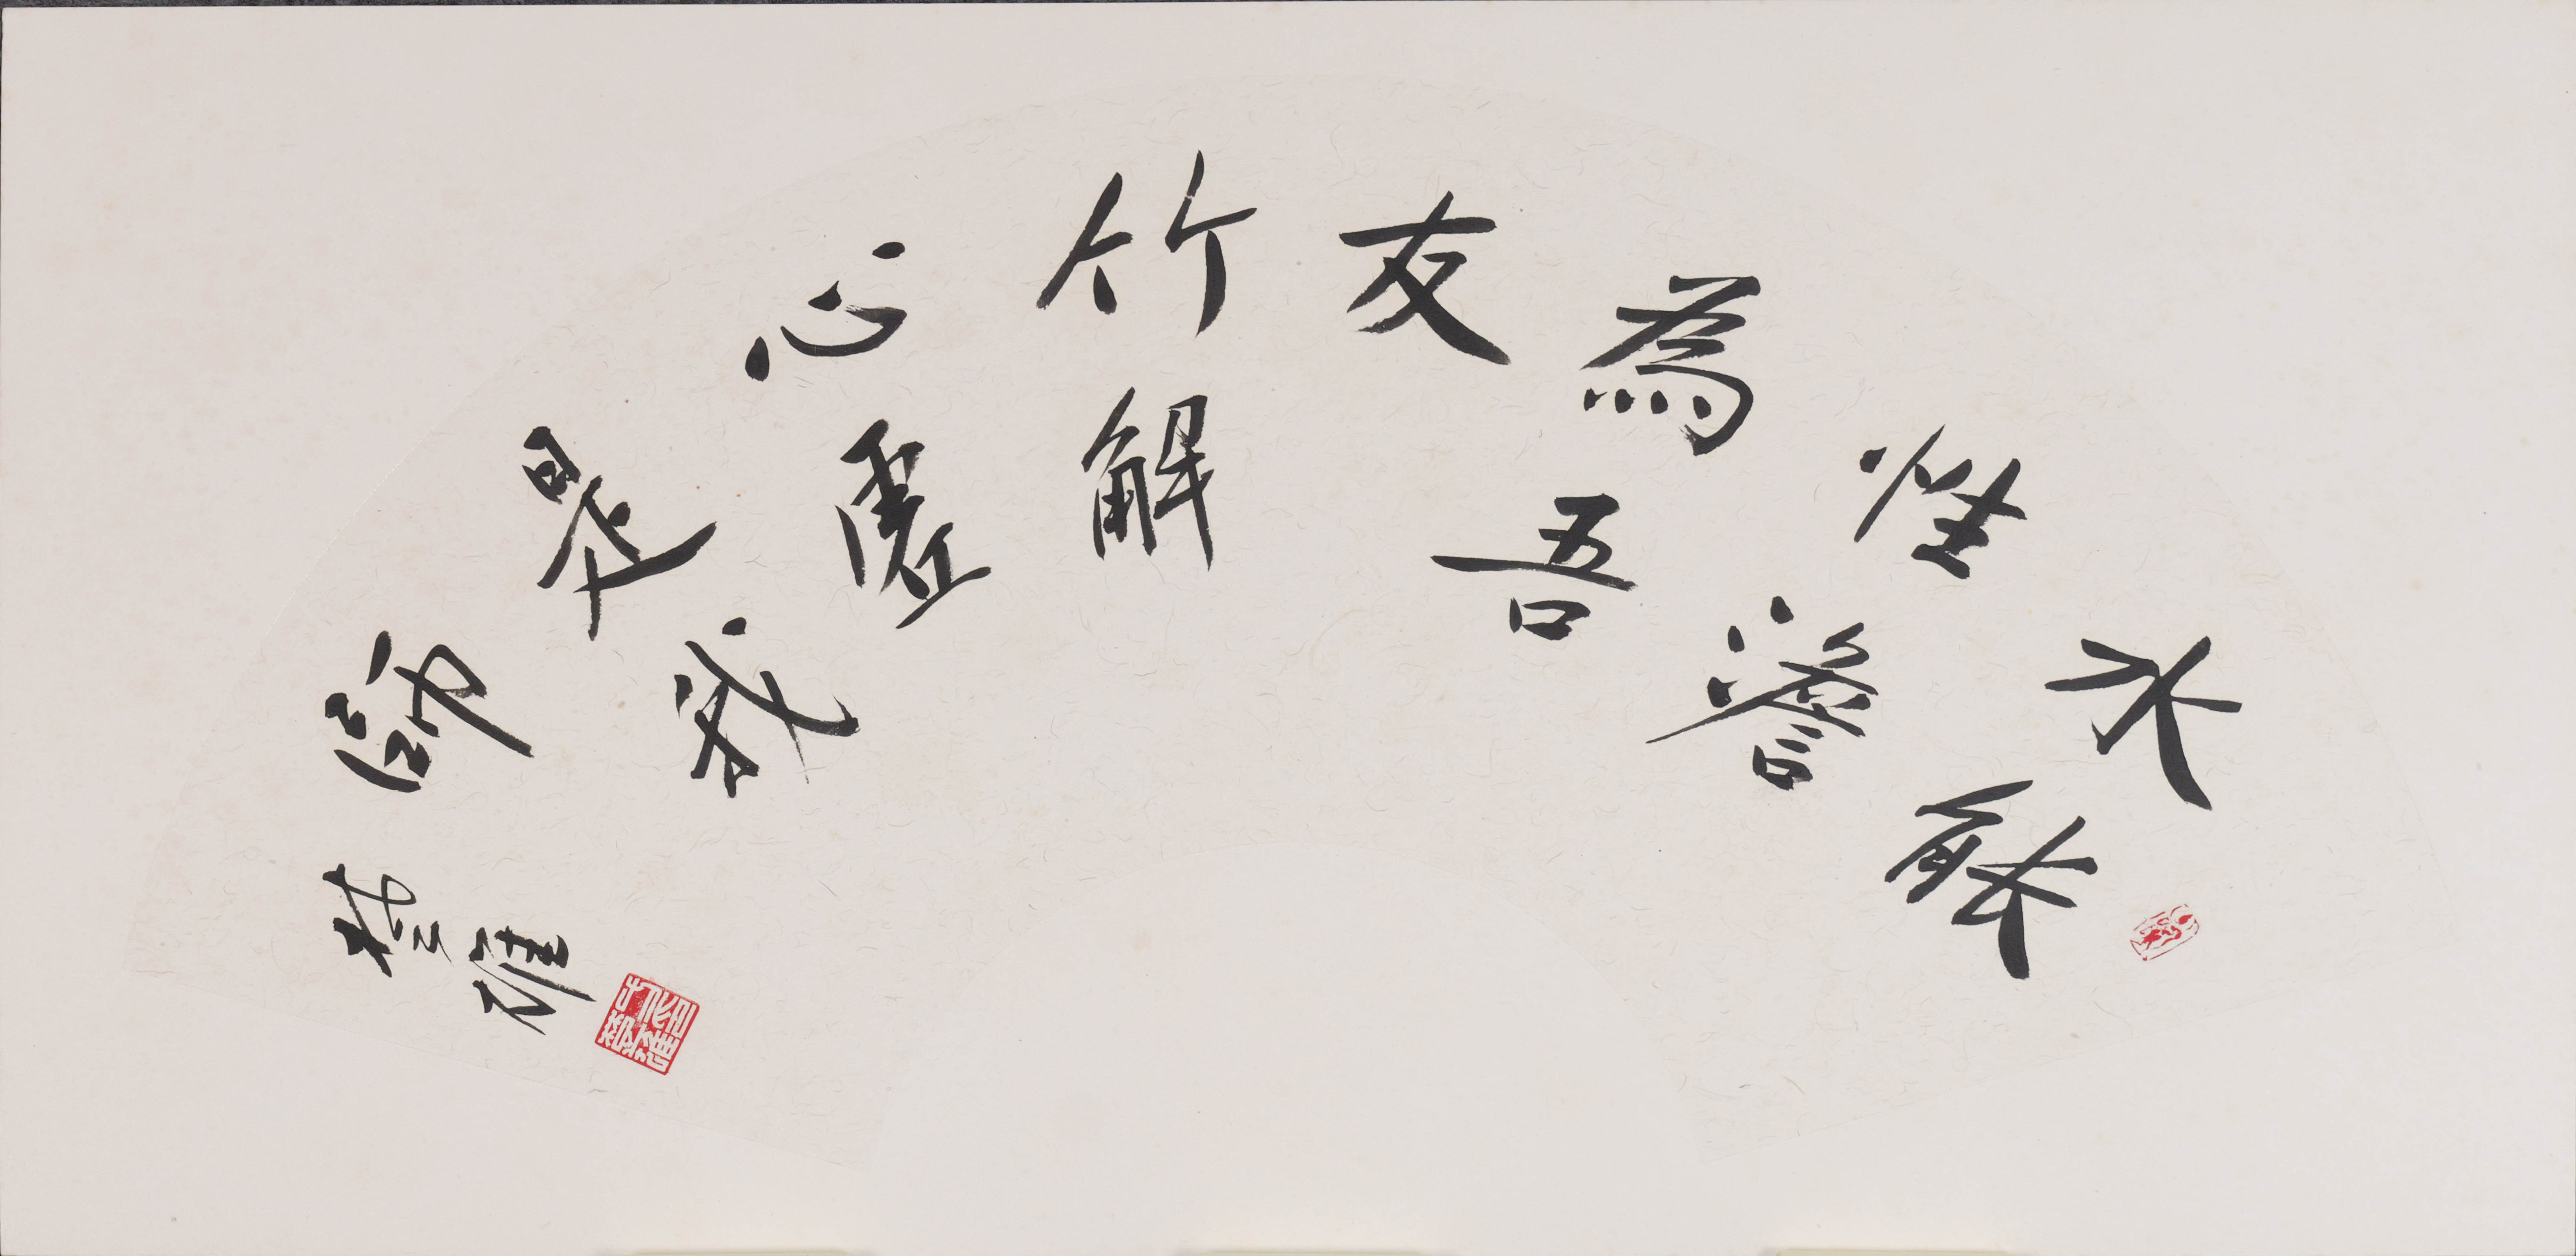 水能
性澹
為吾
友
竹解
心虛
是我
師